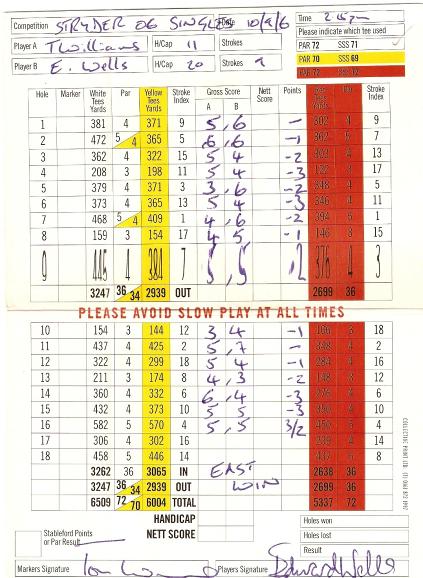 Competition STRYDER 06 SINGLES Date 10/9/6 Time 2.15pm
Please indicate which tee used
Player A T Williams H/Cap 11 Strokes PAR 72 SSS 71
Player B E. Wells H/Cap 20 Strokes 9 PAR 70 SSS 69
PAR 72
Hole Marker White Tees Yards Par Yellow Tees Yards Stroke Index Gross Score A B Nett Score Points Par Stroke Index
1 381 4 371 9 5, 6 – 302 4 9
2 472 5 4 365 5 6, 6 -1 362 5 7
3 362 4 322 15 5 4 -2 303 4 13
4 208 3 198 11 5 4 -3 122 3 17
5 379 4 371 3 3, 6 -2 348 4 5
6 373 4 365 13 5 4 -3 346 4 11
7 468 5 4 409 1 4, 6 -2 394 5 1
8 159 3 154 17 4 5 -1 146 3 15
9 445 4 384 7 5, 5 -2 376 4 3
3247 36 34 2939 OUT 2699 36
PLEASE AVOID SLOW PLAY AT ALL TIMES
10 154 3 144 12 3 4 -1 106 3 18
11 437 4 425 2 5, 7 – 348 4 2
12 299 4 292 18 5 4 -1 284 4 16
13 211 3 174 8 4, 3 -2 148 3 12
14 360 4 332 6 6, 4 -3 4 6
15 432 4 373 10 5, 5 -3 4 10
16 582 5 570 4 5, 5 3/2 450 5 4
17 306 4 302 16 239 4 14
18 458 5 446 14 437 5 8
3262 36 3065 IN EAST 2638 36
3247 36 34 2939 OUT WIN 2699 36
6509 72 70 6004 TOTAL 5337 72
HANDICAP Holes won
Stableford Points or Par Result NETT SCORE Holes lost
Result
Markers Signature Players Signature Edward Wells